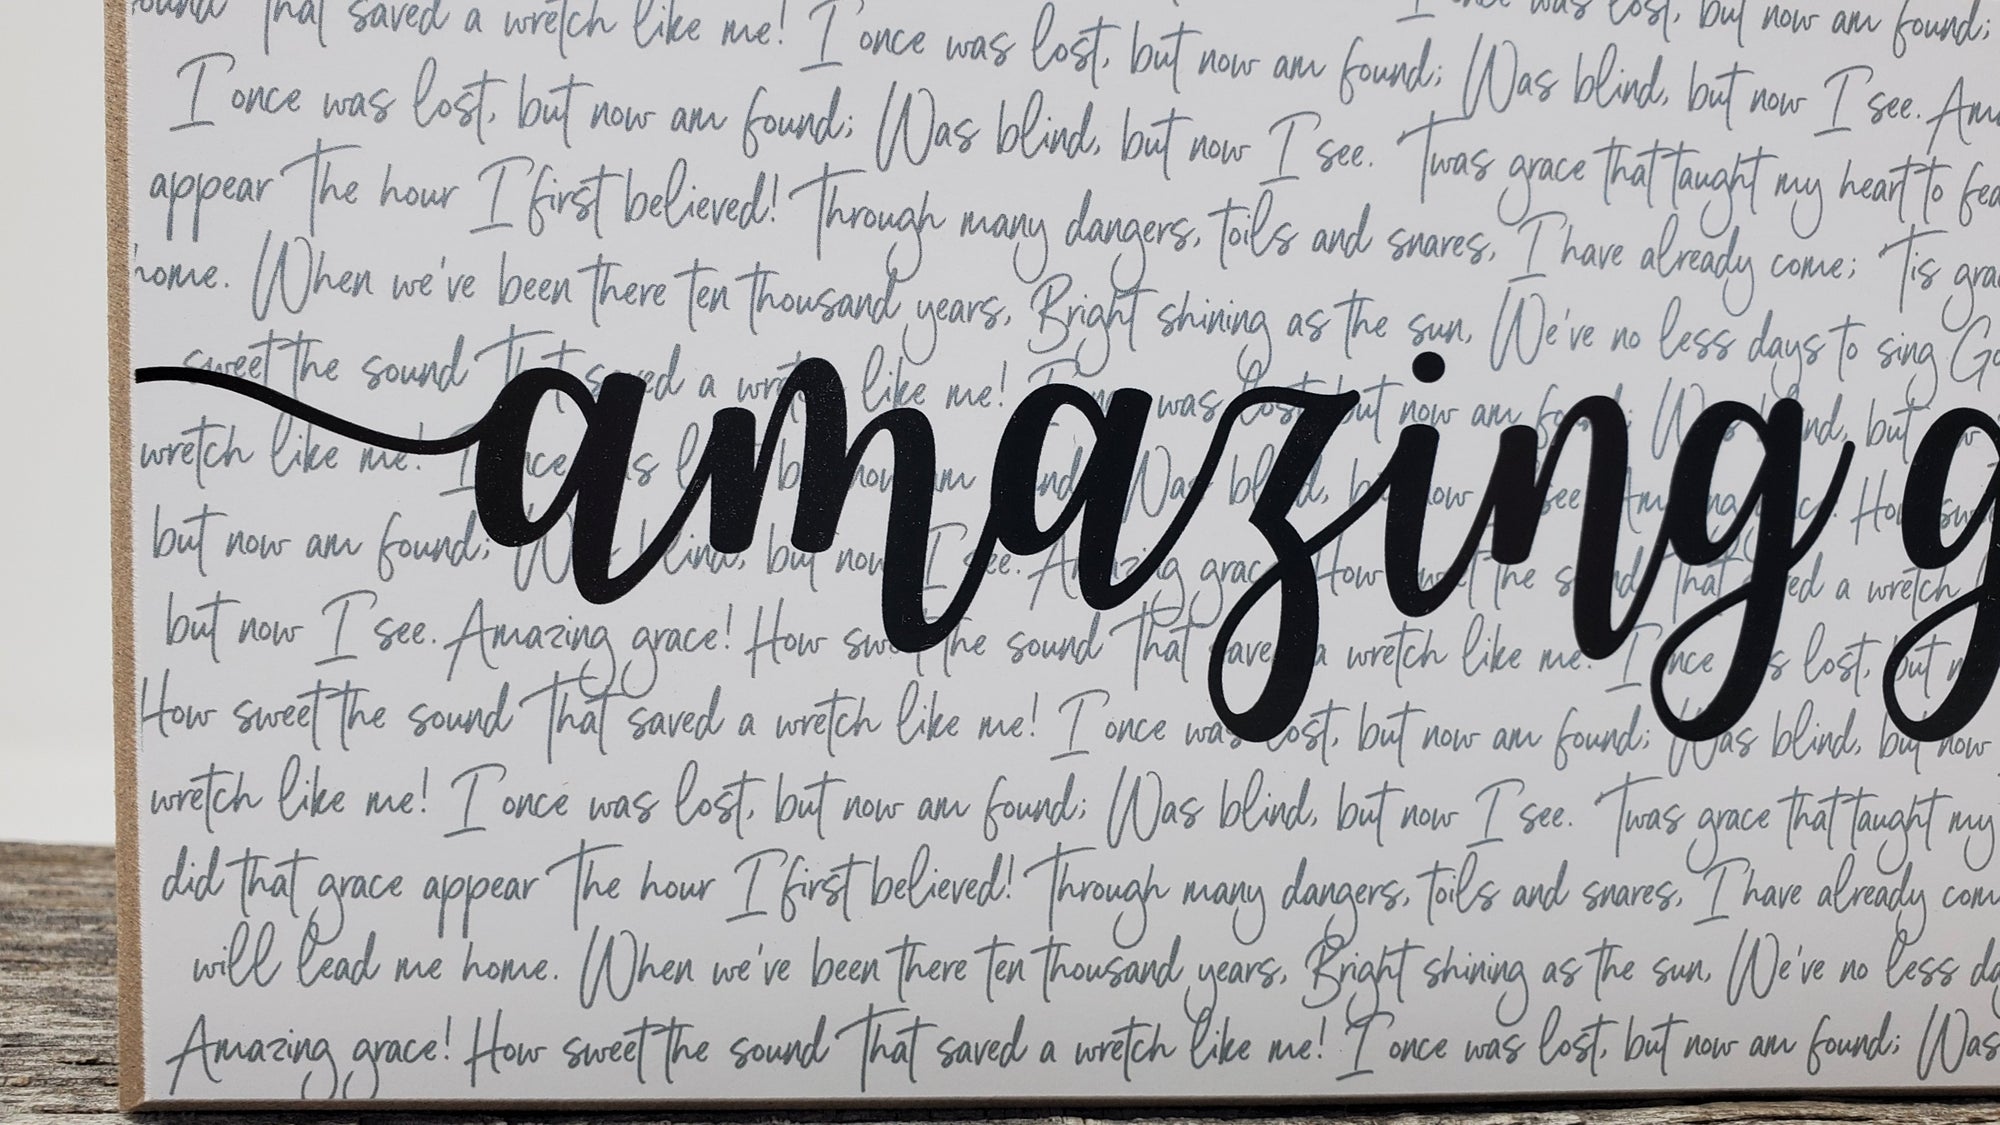 That saved a wretch like me! I once was lost, but now am found;
I once was lost, but now am found; Was blind, but now I see.
I once was lost, but now am found; Was blind, but now I see. 'Twas grace that taught my heart to
appear The hour I first believed! Through many dangers, toils and snares, I have already come; 'Tis
home. When we've been there ten thousand years, Bright shining as the sun, We've no less days to sing
sweet the sound That saved a wretch like me! I once was lost, but now am found; Was blind, but now
amazing g
wretch like me! I once was lost, but now am found; Was blind, but now I see. Amazing grace! How sweet
but now am found; Was blind, but now I see. Amazing grace! How sweet the sound That saved a wretch
but now I see. Amazing grace! How sweet the sound That saved a wretch like me! I once was lost, but
How sweet the sound That saved a wretch like me! I once was lost, but now am found; Was blind, but now
wretch like me! I once was lost, but now am found; Was blind, but now I see. 'Twas grace that taught my
did that grace appear The hour I first believed! Through many dangers, toils and snares, I have already
will lead me home. When we've been there ten thousand years, Bright shining as the sun, We've no less
Amazing grace! How sweet the sound That saved a wretch like me! I once was lost, but now am found; Was